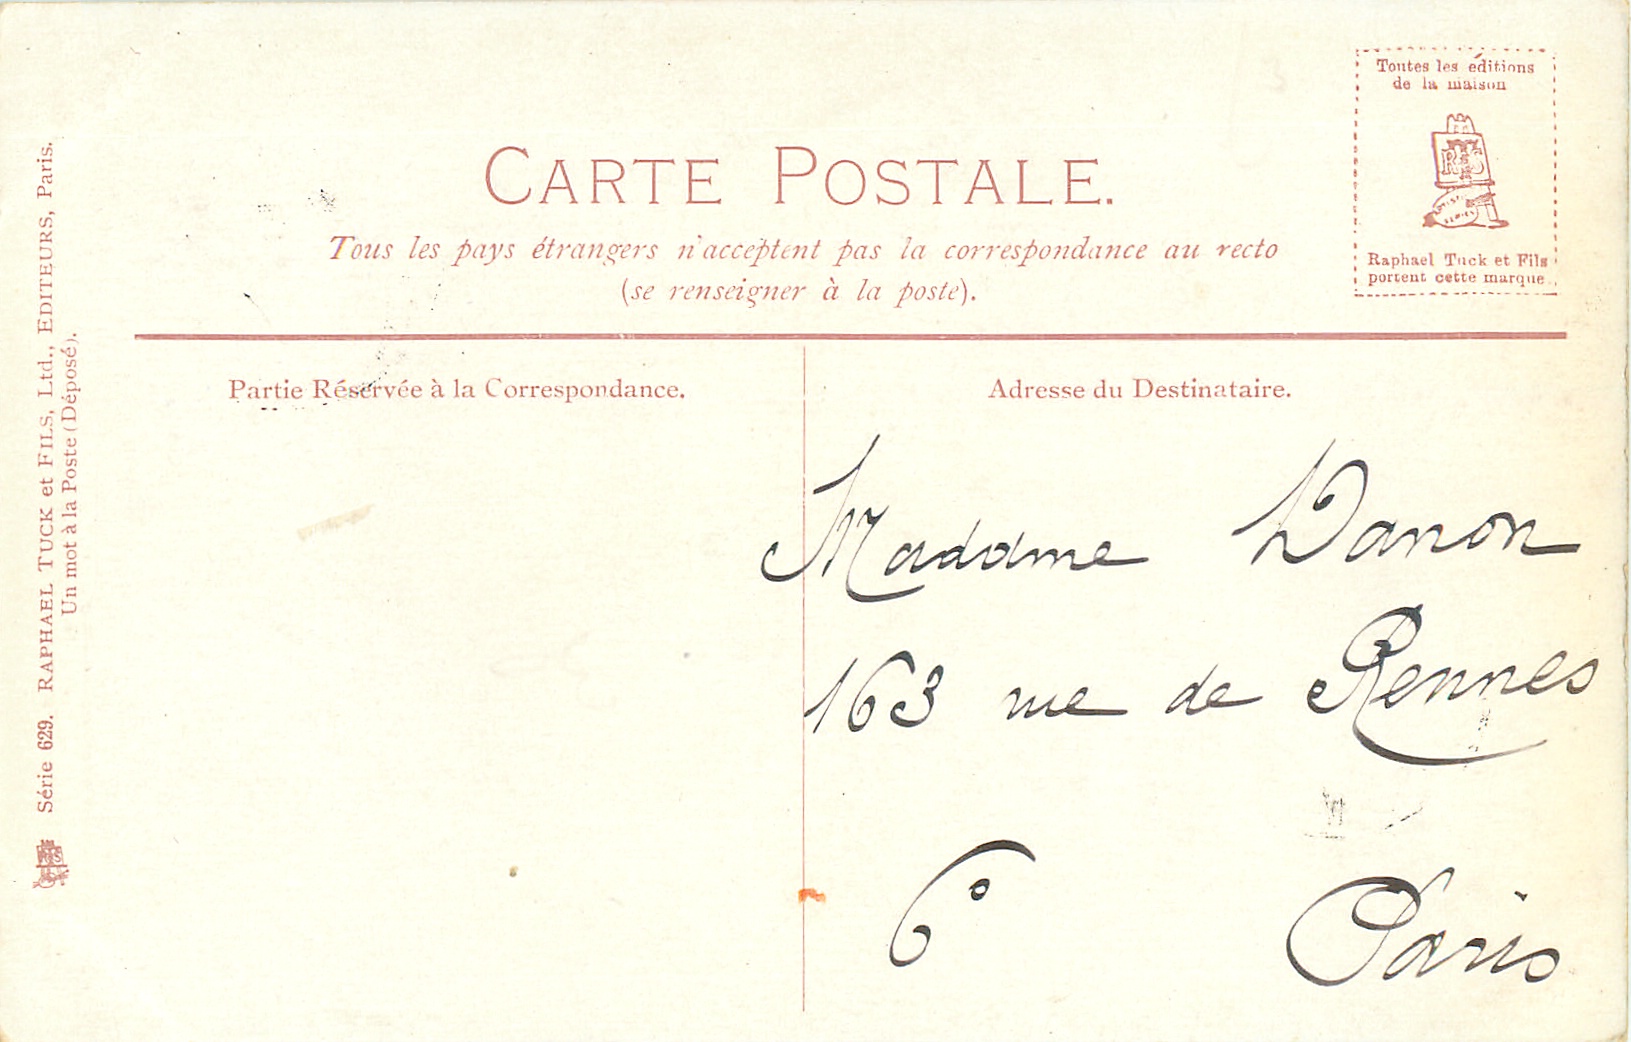 Toutes les éditions
de la maison
R T S
ARTISTIC
SERIES
Raphael Tuck et Fils
portent cette marque.
CARTE POSTALE.
Tous les pays étrangers n'acceptent pas la correspondance au recto
(se renseigner à la poste).
Partie Réservée à la Correspondance.
Adresse du Destinataire.
Madame Danon
163 rue de Rennes
6° Paris
Série 629. RAPHAEL TUCK et FILS, Ltd., EDITEURS, Paris.
Un mot à la Poste (Déposé).